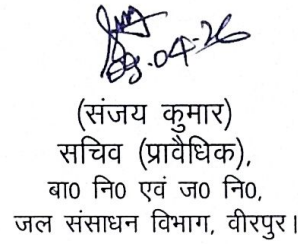 09.04.26
(संजय कुमार)
सचिव (प्रावैधिक),
बा0 नि0 एवं ज0 नि0,
जल संसाधन विभाग, वीरपुर।